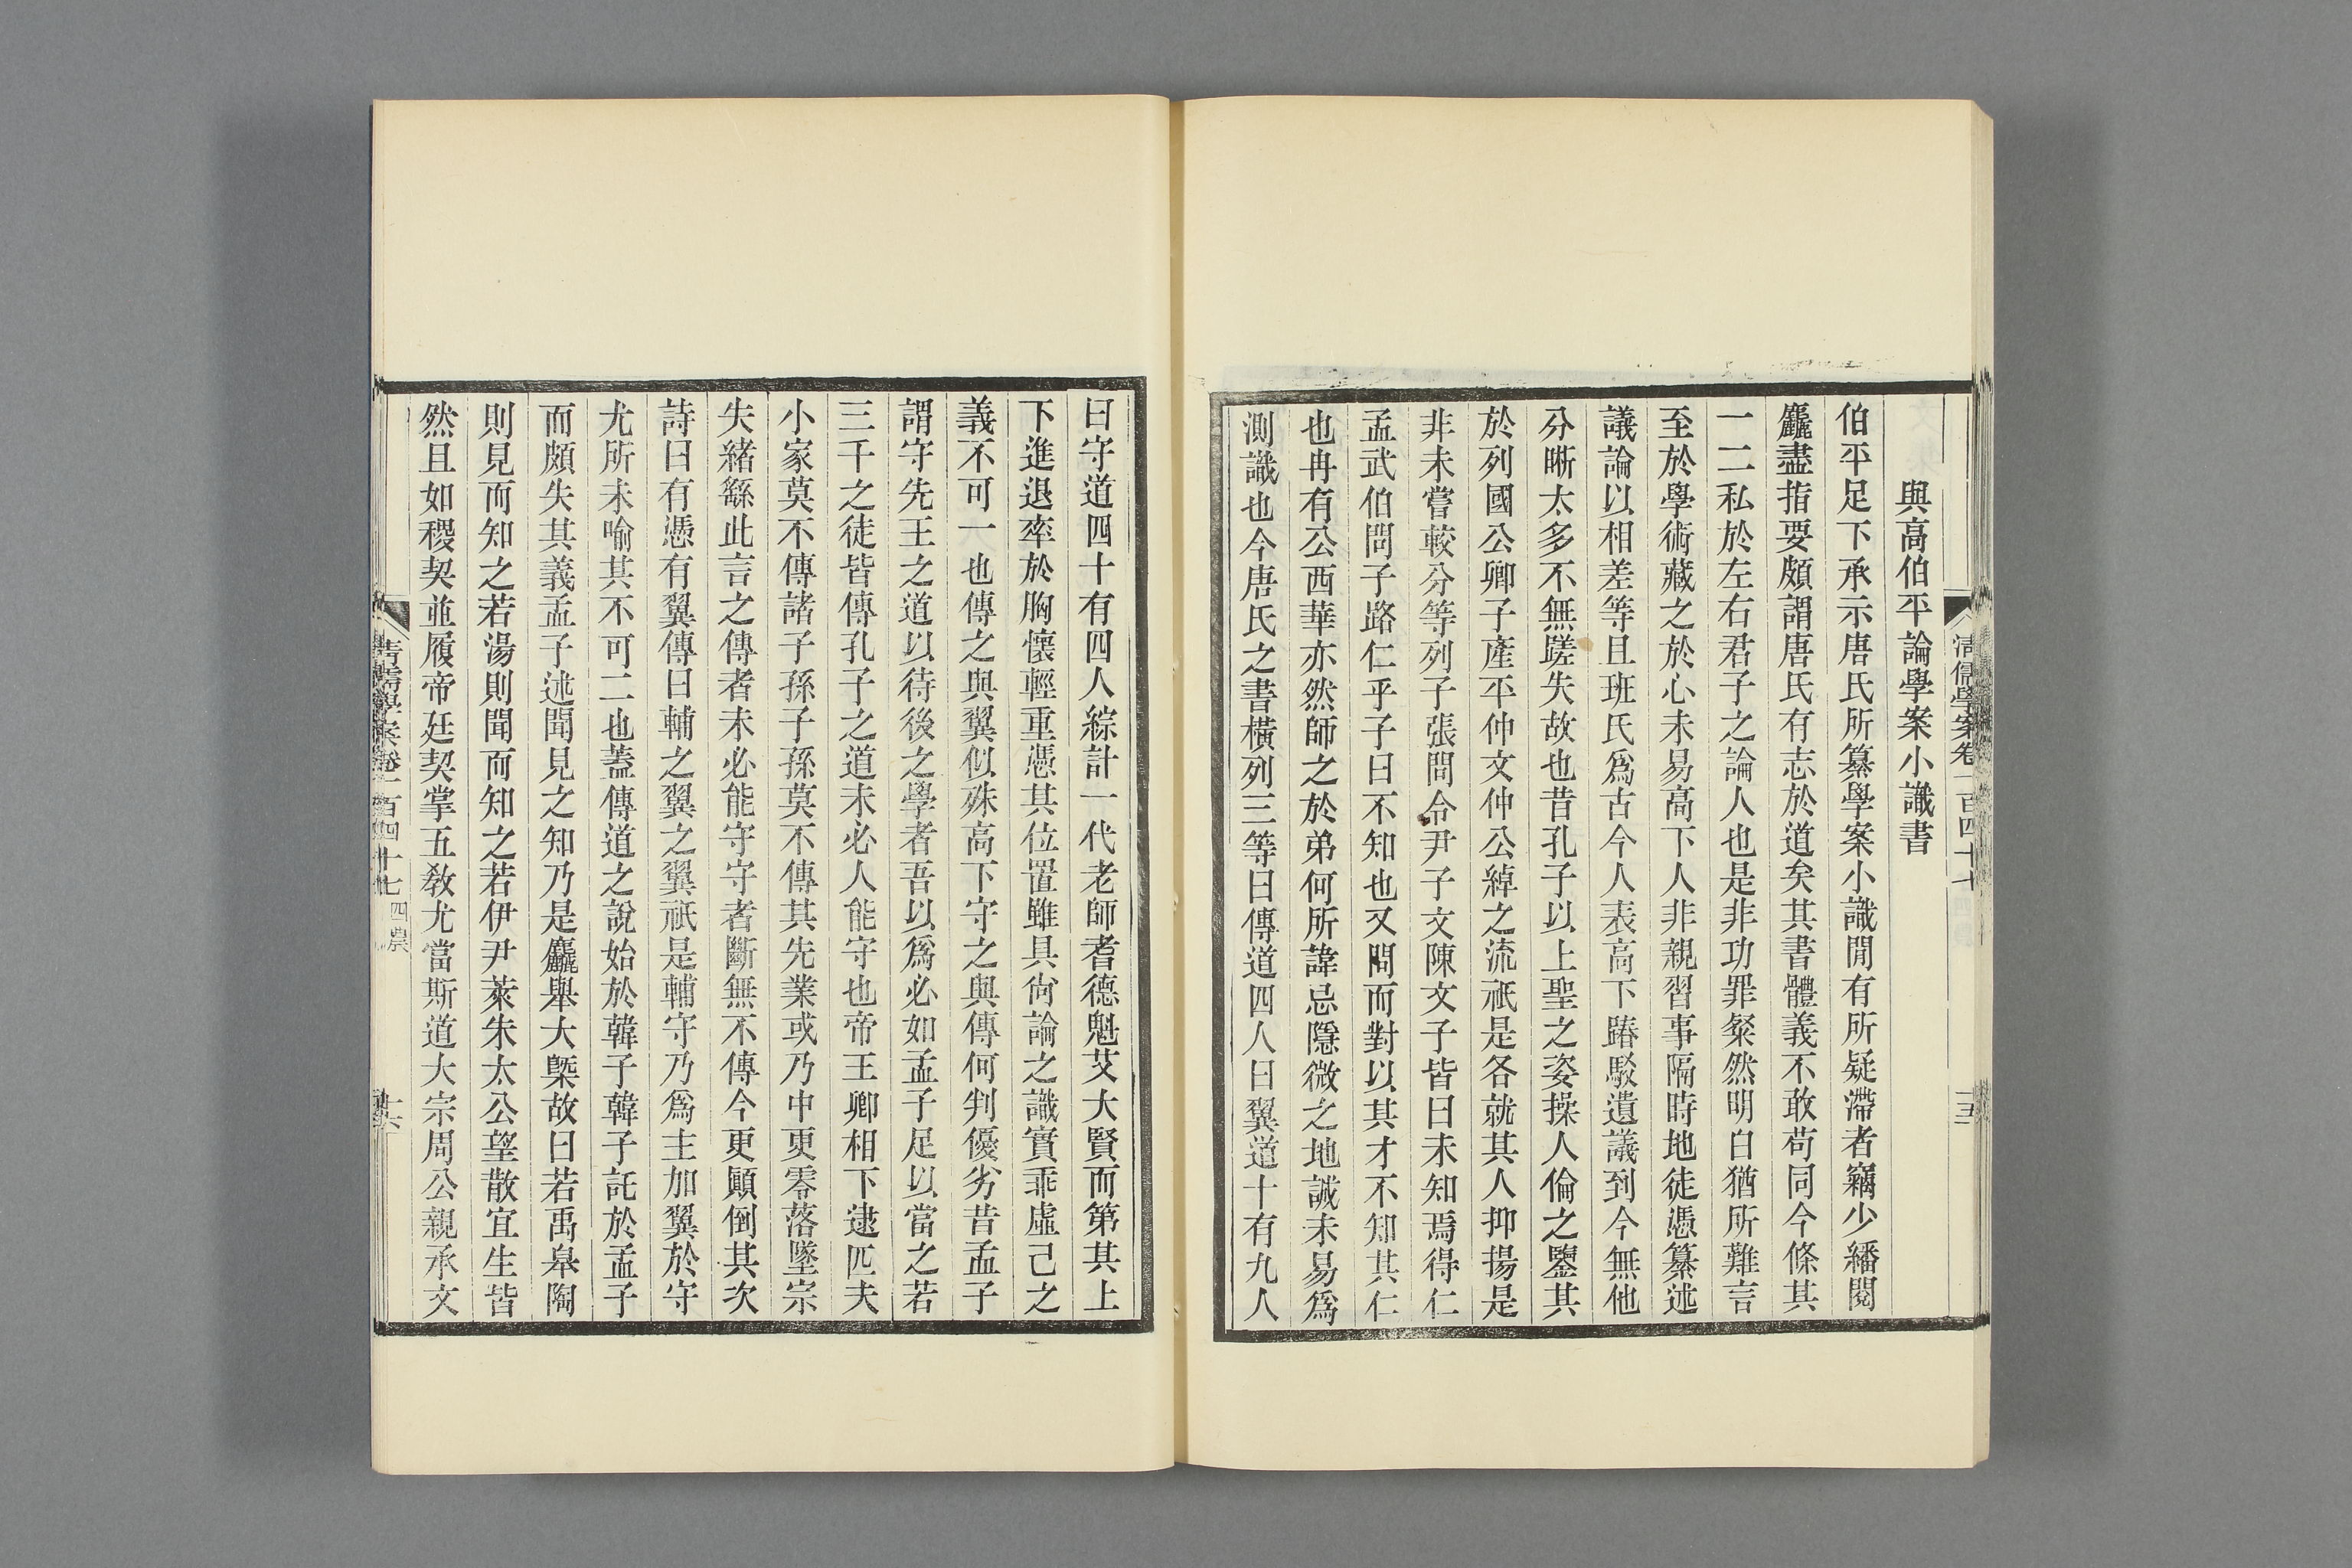 清儒學案卷一百四十七
十五
與高伯平論學案小識書
伯平足下承示唐氏所纂學案小識閒有所疑滯者竊少繙閱
麤盡指要頗謂唐氏有志於道矣其書體義不敢苟同今條其
一二私於左右君子之論人也是非功罪粲然明白猶所難言
至於學術藏之於心未易高下人非親習事隔時地徒憑纂述
議論以相差等且班氏爲古今人表高下踳駁遺議到今無他
分晰太多不無蹉失故也昔孔子以上聖之姿操人倫之鑒其
於列國公卿子產平仲文仲公綽之流祇是各就其人抑揚是
非未嘗較分等列子張問令尹子文陳文子皆曰未知焉得仁
孟武伯問子路仁乎子曰不知也又問而對以其才不知其仁
也冉有公西華亦然師之於弟何所諱忌隱微之地誠未易爲
測識也今唐氏之書橫列三等曰傳道四人曰翼道十有九人
曰守道四十有四人綜計一代老師耆德魁艾大賢而第其上
下進退率於胸懷輕重憑其位置雖具尙論之識實乖虛己之
義不可一也傳之與翼似殊高下守之與傳何判優劣昔孟子
謂守先王之道以待後之學者吾以爲必如孟子足以當之若
三千之徒皆傳孔子之道未必人能守也帝王卿相下逮匹夫
小家莫不傳諸子孫子孫莫不傳其先業或乃中更零落墜宗
失緒繇此言之傳者未必能守守者斷無不傳今更顚倒其次
詩曰有憑有翼傳曰輔之翼之翼祇是輔守乃爲主加翼於守
尤所未喻其不可二也蓋傳道之說始於韓子韓子託於孟子
而頗失其義孟子述聞見之知乃是麤舉大槩故曰若禹皋陶
則見而知之若湯則聞而知之若伊尹萊朱太公望散宜生皆
然且如稷契並履帝廷契掌五敎尤當斯道大宗周公親承文
清儒學案卷一百四十七
四農
十六